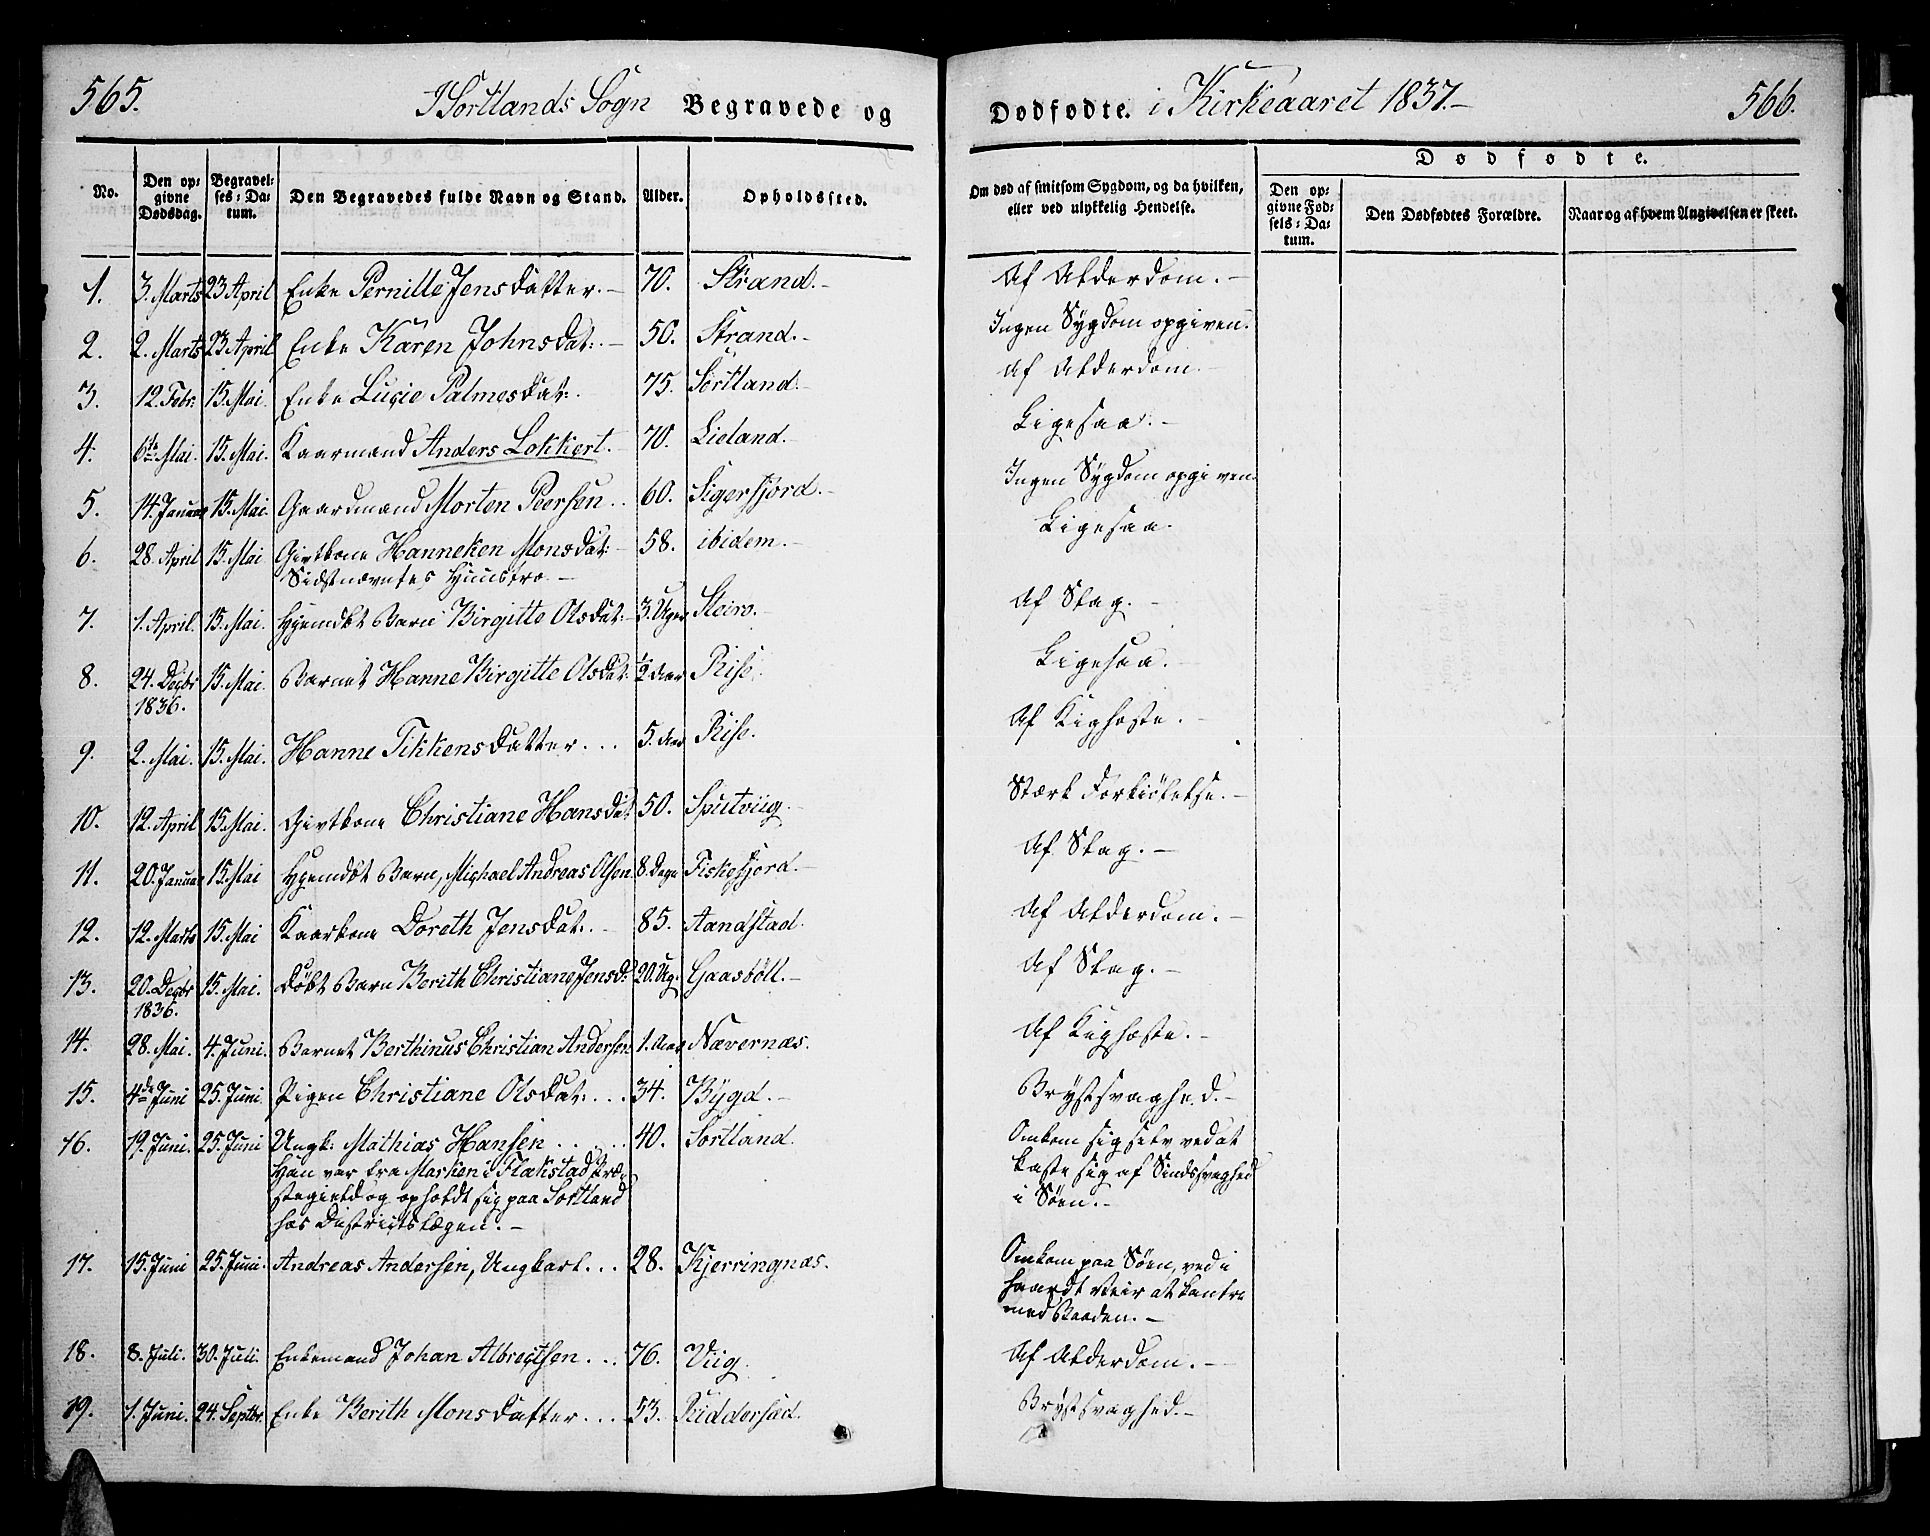 565.
I Sortlands Sogn Begravede og
No.
Den op-
givne
Dødsdag.
Begravel-
ses-Da-
tum.
Den Begravedes fulde Navn og Stand.
Alder.
Opholdssted.
1. 3. Marts 23 April Enke Pernille Jensdatter.- 70. Strand.-
2. 2. Marts 23 April Enke Karen Johnsdat:.- 50. Strand.-
3. 12. Febr: 15. Mai. Enke Lucie Palmesdat:. 75. Sortland.-
4. 6te Mai. 15. Mai. Kaarmand Anders Lokkert.- 70. Lieland.
5. 14. Januar 15. Mai. Gaardmand Morten Peersen.. 60. Sigerfjord.-
6. 28. April 15. Mai Givtkone Hanneken Monsdat:- 58. ibidem.-
Sidstnævntes Huustro.-
7. 1. April. 15. Mai. Hjemdøbt Barn Birgitte Olsdat:- 3. Uger Steiro.-
8. 24. Decbr 15. Mai. Barnet Hanne Birgitte Olsdat: 1/2 Aar Rise.
1836.
9. 2. Mai. 15. Mai. Hanne Tikkensdatter... 5. Aar Rise.
10. 12. April 15. Mai. Givtkone Christiane Hansdat 50. Sputviig.-
11. 20. Januar 15. Mai Hjemdøt Barn, Michael Andreas Olsen 8. Dage Fiskefjord.-
12. 12. Marts 15. Mai Kaarkone Dorath Jensdat:.- 85. Aandstad.
13. 20. Decbr 15. Mai. Døbt Barn Berith Christiane Jensd: 20. Ug: Gaasbøll.-
1836.
14. 28. Mai. 4. Juni. Barnet Berthinus Christian Andersen 1. Aar Nævernæs.
15. 4de Juni 25. Juni. Pigen Christiane Olsdat:... 34. Bÿgd.-
16. 19. Juni. 25. Juni Ungk: Mathias Hansen..... 40. Sortland.
Han var fra Marken i Flakstad Præ-
stegield og opholdt sig paa Sortland
hos Districtslægen.-
17. 15. Juni 25. Juni. Andreas Andersen, Ungkarl... 28. Kjerringnæs.
18. 8. Juli. 30. Juli. Enkemand Johan Albrectsen... 76. Viig.
19. 1. Juni. 24. Septbr. Enke Berith Monsdatter... 53. Riddersæd.
Dødfødte. i Kirkeaaret 1837.-
566.
Om død af smitsom Sygdom, og da hvilken,
eller ved ulykkelig Hendelse.
Dødfødte.
Den op-
givne Fød-
sels-Da-
tum.
Den Dødfødtes Forældre.
Naar og af hvem Angivelsen er skeet.
Af Alderdom.-
Ingen Sygdom opgiven.
Af Alderdom.-
Ligesaa.-
Ingen Sygdom opgiven.
Ligesaa.
Af Slag.-
Ligesaa.-
Af Kighoste.-
Stærk Forkiølelse.-
Af Slag.-
Af Alderdom.-
Af Slag.-
Af Kighoste.-
Brystsvaghed.-
Omkom sig selv ved at
kaste sig af Sindssvaghed
i Søen.-
Omkom paa Søen, ved i
haardt Veir at kantre
med Baaden.-
Af Alderdom.-
Brystsvaghed.-